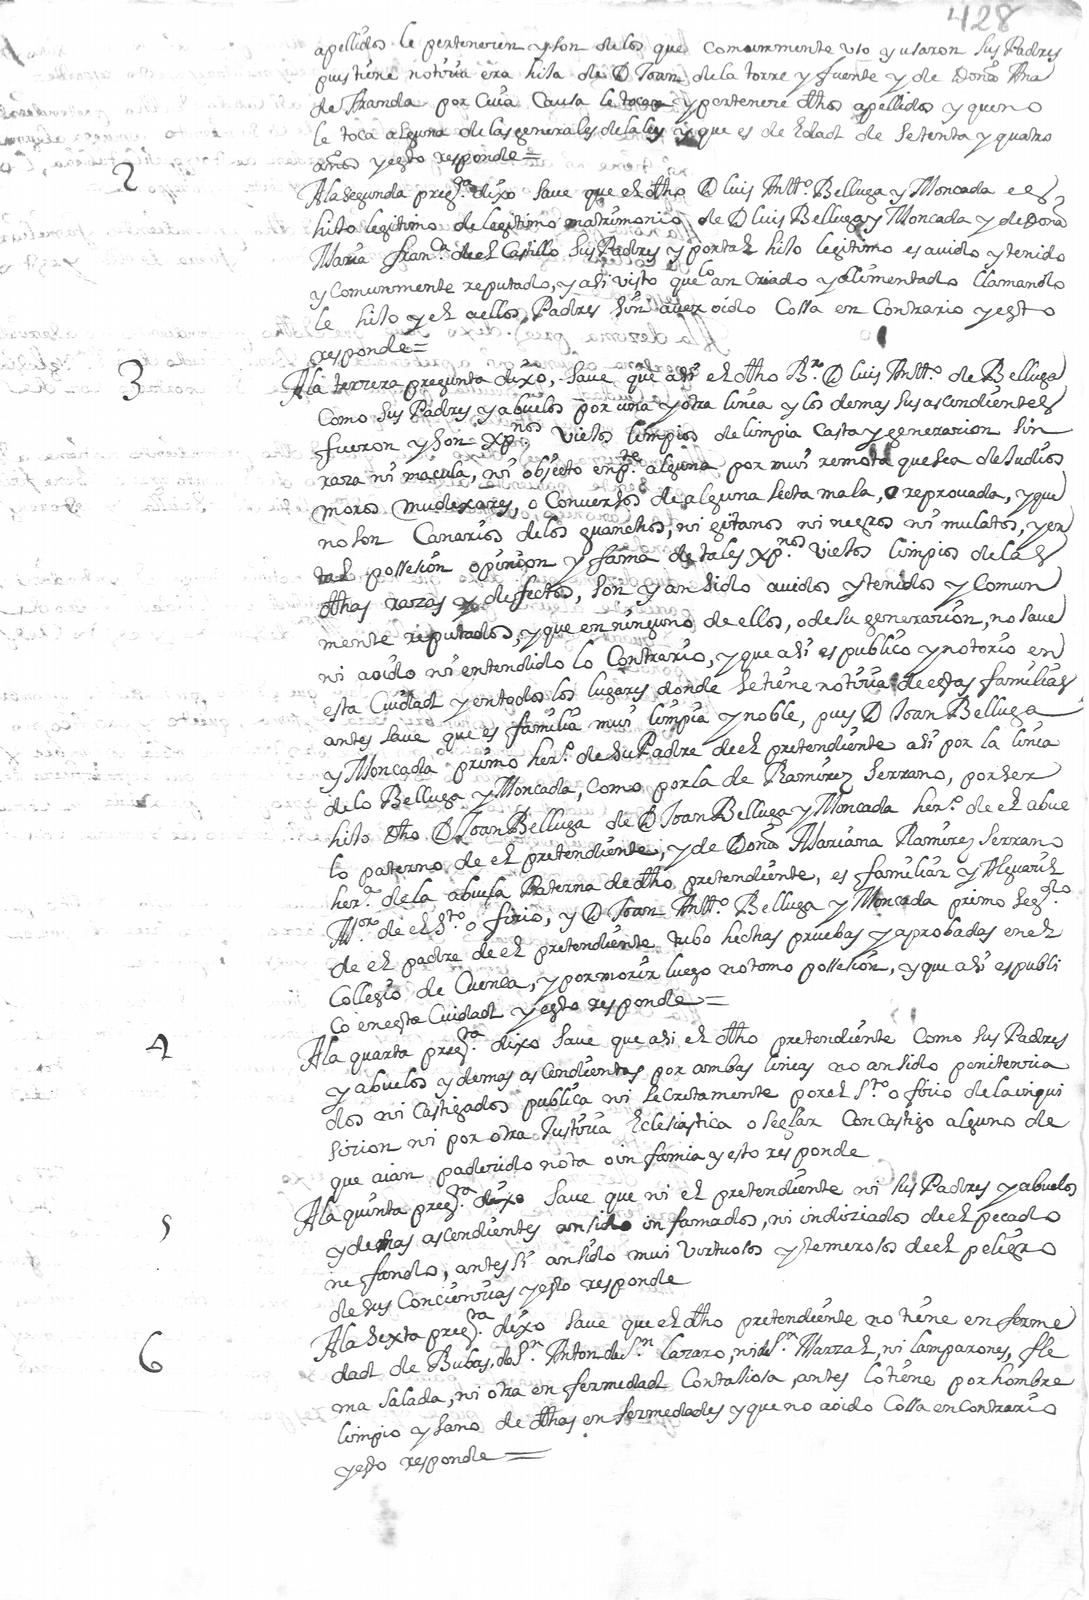 428
apellidos le pertenecen y son de los que comunmente uso y usaron sus Padres
pues tiene noticia era hija de D Joan de la torre y fuente y de Doña Ana
de Aranda por cuia causa le toca y pertenece dthos apellidos y que no
le toca alguna de las generales de la ley y que es de Edad de setenta y quatro
años y esto responde =
2
A la segunda preg.ta dixo save que el dtho D luis Antt.o Belluga y Moncada es
hijo legitimo de legitimo matrimonio de D luis Belluga y Moncada y de Doña
Maria fran.ca de el Castillo sus Padres y por tal hijo legitimo es auido y tenido
y comunmente reputado, y asi visto que lo an criado y alimentado llamandо
le hijo y el a ellos Padres sin aver oido cossa en contrario y esto
responde =
3
A la tercera pregunta dixo, save que asi el dtho B.r D luis Antt.o de Belluga
como sus Padres y abuelos por una y otra linea y los demas sus ascendientes
fueron y son xp.nos viejos limpios de limpia casta y generacion sin
raza ni macula, ni objecto en p.te alguna por mui remota que sea de Judios
moros mudexares, o conversos de alguna secta mala, o reprovada, y que
no son Canarios de los guanchos, ni gitanos ni negros ni mulatos, y en
tal possesion opinion y fama de tales xp.nos viejos limpios de las
dthas razas y defectos, son y an sido auidos y tenidos y comun
mente reputados, y que en ninguno de ellos, o de su generacion, no save
ni aoido ni entendido lo contrario, y que asi es publico y notorio en
esta Cuidad y en todos los lugares donde se tiene noticia de estas familias
antes save que es familia mui limpia y noble, pues D Joan Belluga
y Moncada primo her.o de su Padre de el pretendiente asi por la linia
de lo Belluga y Moncada, como por la de Ramirez Serrano, por ser
hijo dtho D. Joan Belluga de D Joan Belluga y Moncada her.o de el abue
lo paterno de el pretendiente, y de Doña Mariana Ramirez Serrano
her.a de la abuela Paterna de dtho pretendiente, es familiar y Alguacil
M.or de el S.to ofizio, y D Joan Antt.o Belluga y Moncada primo seg.do
de el padre de el pretendiente tubo hechas pruebas y aprobadas en el
Collegio de Cuenca, y por morir luego no tomo possesion, y que asi es publi
co en esta Cuidad y esto responde =
4
A la quarta preg.ta dixo save que asi el dtho pretendiente como sus Padres
y abuelos y demas ascendientes por ambas lineas no an sido penitencia
dos ni castigados publica ni secretamente por el S.to ofizio de la inqui
sizion ni por otra Justicia Eclesiastica o seglar con castigo alguno de
que aian padecido nota o infamia y esto responde
5
A la quinta preg.ta dixo save que ni el pretendiente ni sus Padres y abuelos
y demas ascendientes an sido infamados, ni indiziados de el pecado
nefando, antes si an sido mui virtuosos y temerosos de el peligro
de sus conciencias y esto responde
6
A la sexta preg.ta dixo save que el dtho pretendiente no tiene enferme
dad de Bubas, de S.n Anton de S.n Lazaro, ni de S.n Marzal, ni lamparones, fle
ma salada, ni otra enfermedad contajiosa, antes lo tiene por hombre
limpio y sano de dthas enfermedades y que no aoido cossa en contrario
y esto responde =